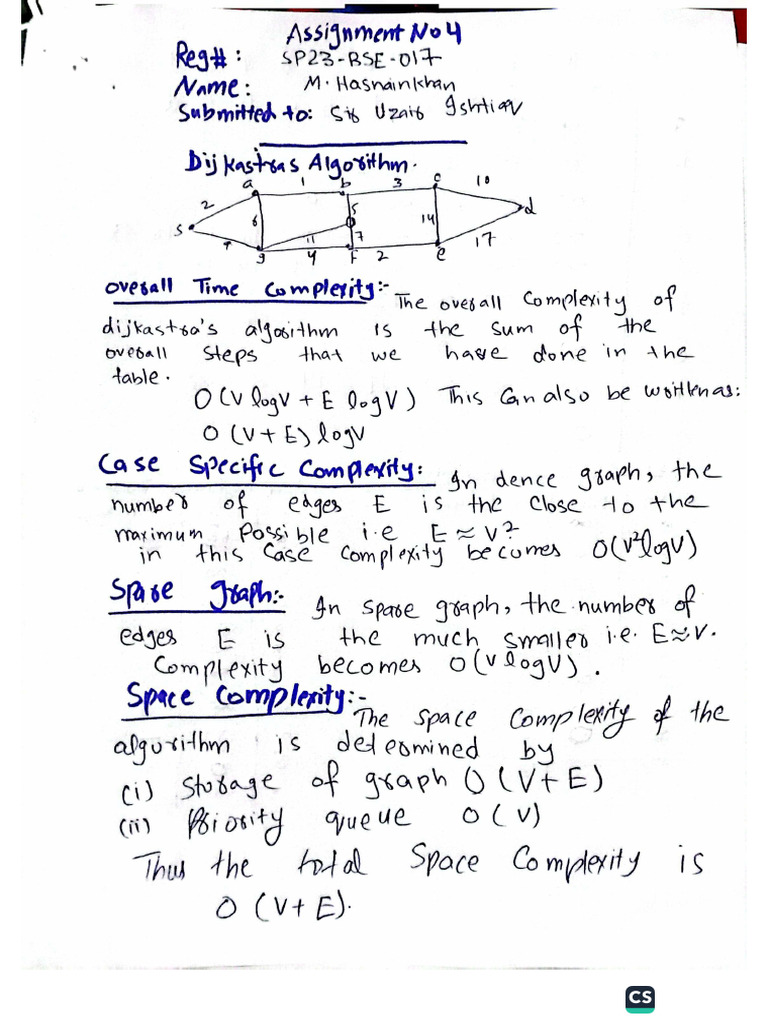 Assignment No 4
Reg#: SP23-BSE-017
Name: M. Hasnain Khan
Submitted to: Sir Uzair Ishtiaq
Dijkastras Algorithm.
a 1 b 3 c 10
2 6 5 14 d
s 11 7 17
g 4 f 2 e
Overall Time Complexity:- The overall Complexity of
dijkastra's algorithm is the sum of the
overall steps that we have done in the
table.
O(V logV + E logV) This can also be written as:
O (V+E) logV
Case Specific Complexity: In dence graph, the
number of edges E is the close to the
maximum possible i.e E ≈ V²
in this case complexity becomes O(V²logV)
Sparse graph:- In sparse graph, the number of
edges E is the much smaller i.e. E≈V.
Complexity becomes O(V logV).
Space Complexity:-
The space complexity of the
algorithm is determined by
(i) Storage of graph O(V+E)
(ii) Priority queue O(V)
Thus the total Space Complexity is
O (V+E).
CS